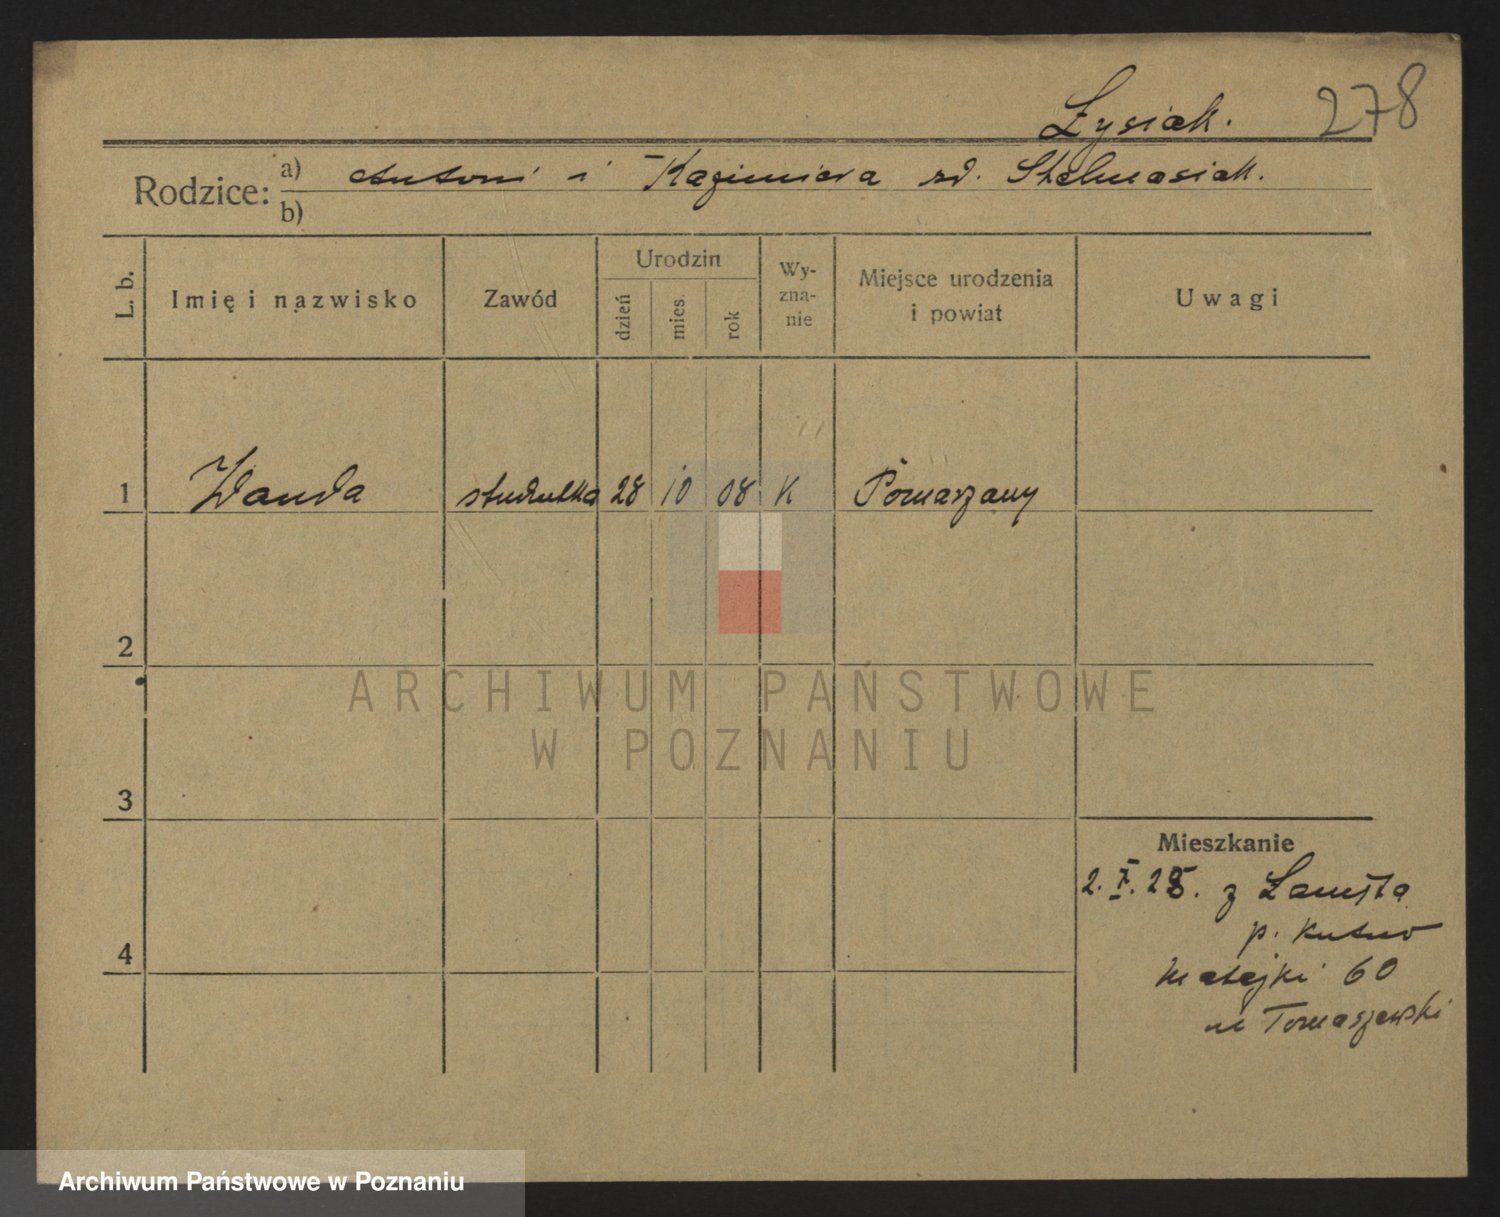 Łysiak. 278
Rodzice: a) Antoni i Kazimiera zd. Stelmasiak.
b)
L. b. Imię i nazwisko Zawód Urodzin dzień mies. rok Wy-zna-nie Miejsce urodzenia i powiat Uwagi
1 Wanda studentka 28 10 08 K Pomarzany
2
3
4
Mieszkanie
2. X. 28. z Łanięta
p. Kutno
Matejki 60
Tomaszewski
ARCHIWUM PAŃSTWOWE
W POZNANIU
Archiwum Państwowe w Poznaniu